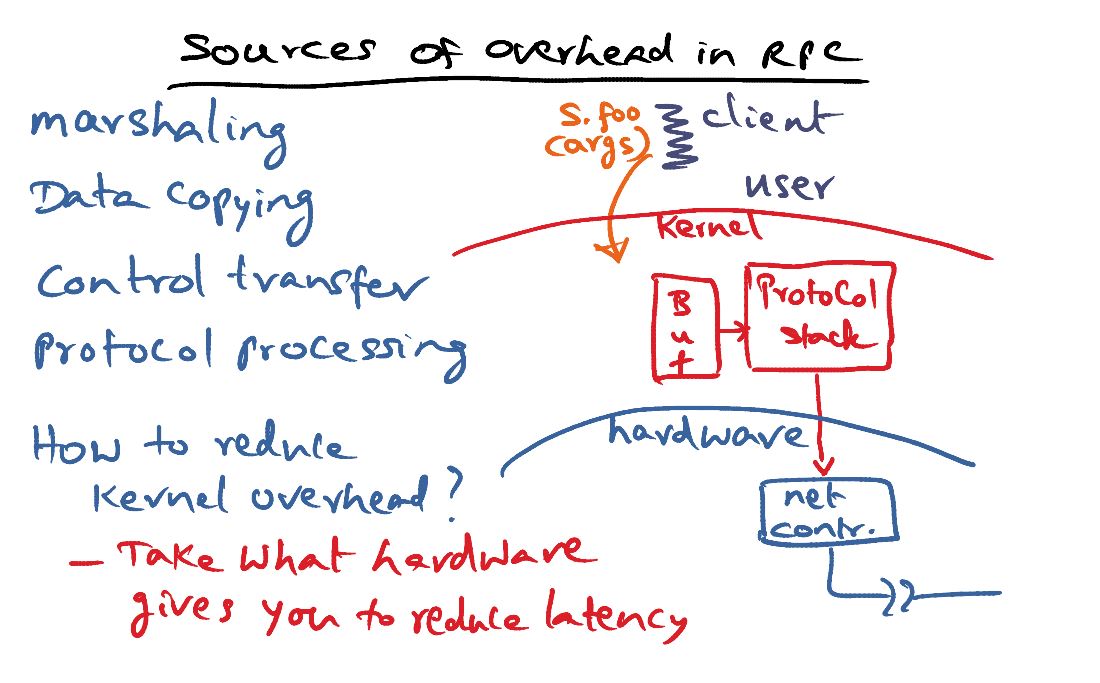 Sources of overhead in RPC
marshaling
Data copying
Control transfer
Protocol processing
How to reduce
Kernel overhead?
- Take what hardware
gives you to reduce latency
S.foo
(args)
client
user
Kernel
Buf
Protocol
stack
hardware
net
contr.